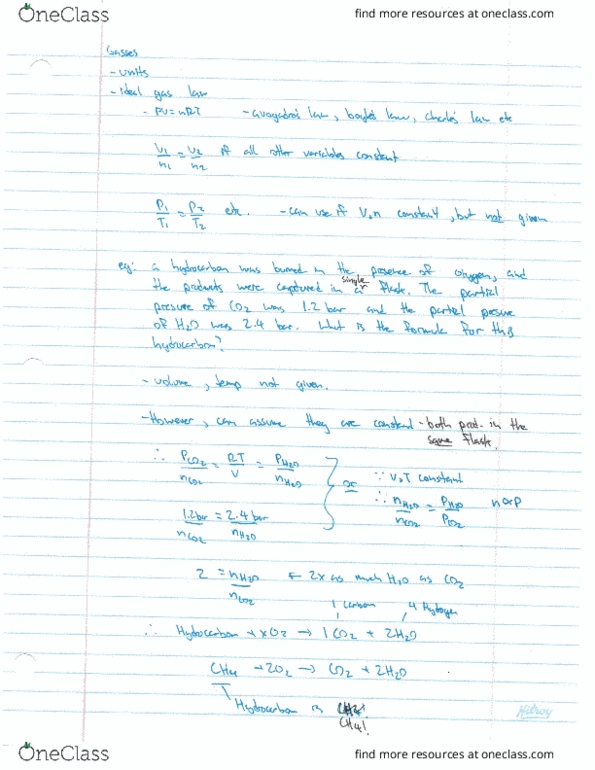 OneClass
find more resources at oneclass.com
Gasses
- units
- ideal gas law
- PV=nRT - avagadro's law, boyle's law, charles' law etc
V1/n1 = V2/n2 if all other variables constant
P1/T1 = P2/T2 etc. - can use if V,n constant, but not given
eg: a hydrocarbon was burned in the presence of oxygen, and
the products were captured in a single flask. The partial
pressure of CO2 was 1.2 bar and the partial pressure
of H2O was 2.4 bar. What is the formula for this
hydrocarbon?
- volume, temp not given.
- However, can assume they are constant - both prod. in the
same flask.
∴ PCO2/nCO2 = RT/V = PH2O/nH2O } or ∵ V,T constant
∴ nH2O/nCO2 = PH2O/PCO2 n∝P
1.2bar/nCO2 = 2.4bar/nH2O
2 = nH2O/nCO2 ← 2x as much H2O as CO2
1 carbon 4 Hydrogen
∴ Hydrocarbon + xO2 → 1CO2 + 2H2O
CH4 + 2O2 → CO2 + 2H2O
Hydrocarbon is
CH4!
Hilroy
OneClass
find more resources at oneclass.com